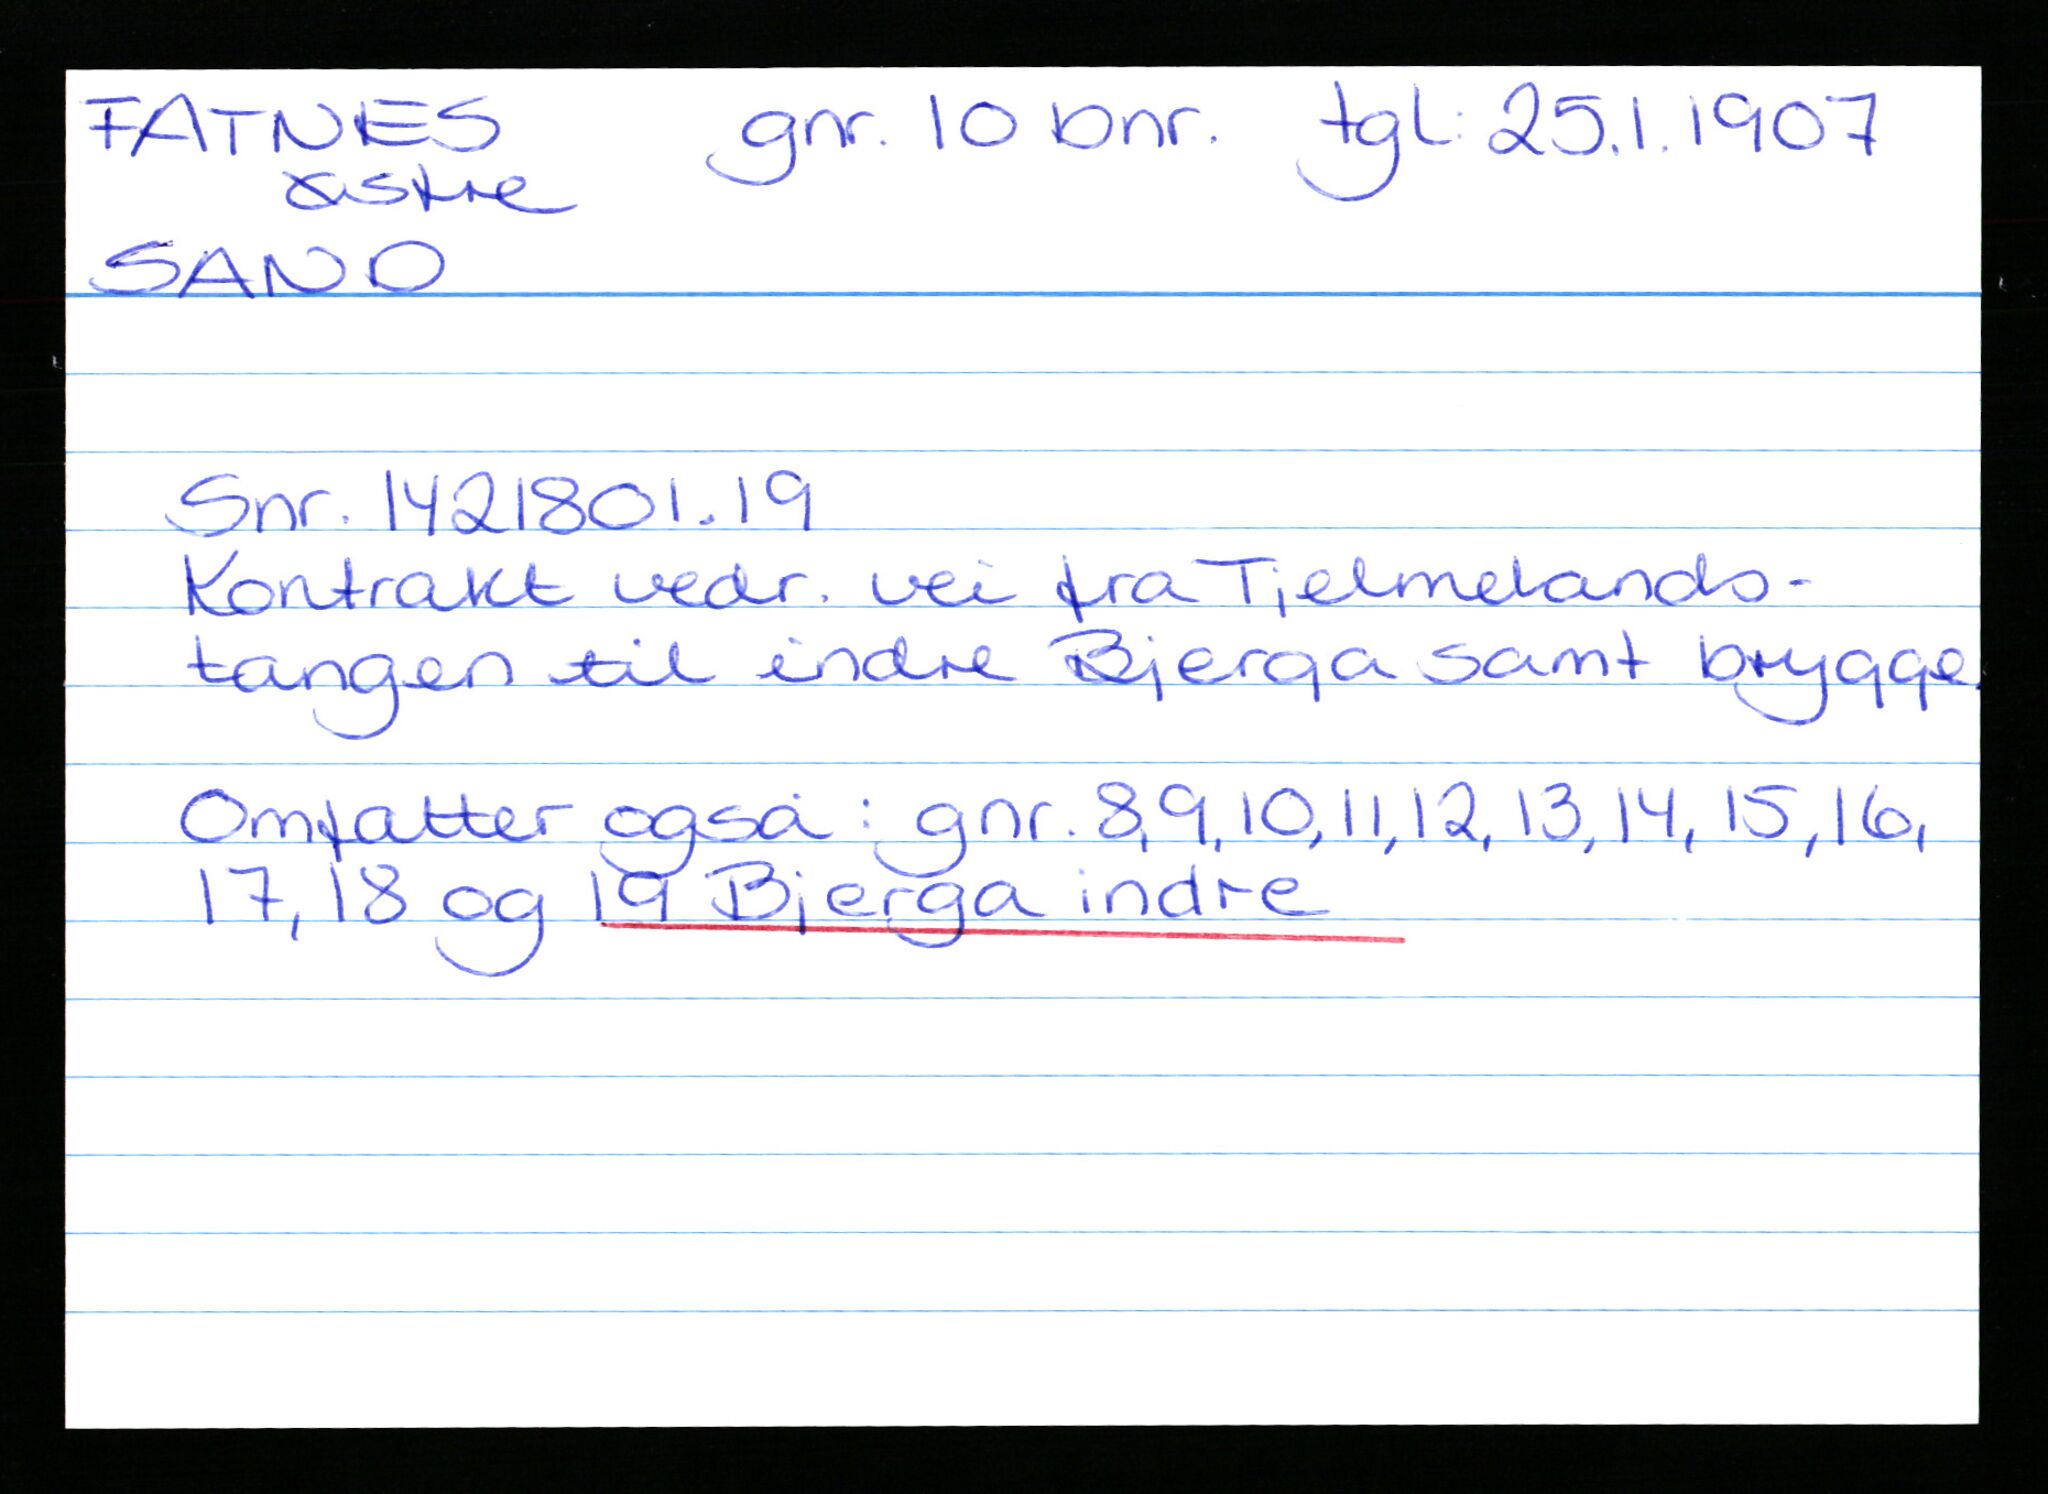 FATNES gnr. 10 bnr. tgl: 25.1.1907
østre
SAND
Snr. 1421801.19
Kontrakt vedr. vei fra Tjelmelands-
tangen til indre Bjerga samt brygge.
Omfatter også: gnr. 8,9,10,11,12,13,14,15,16,
17,18 og 19 Bjerga indre